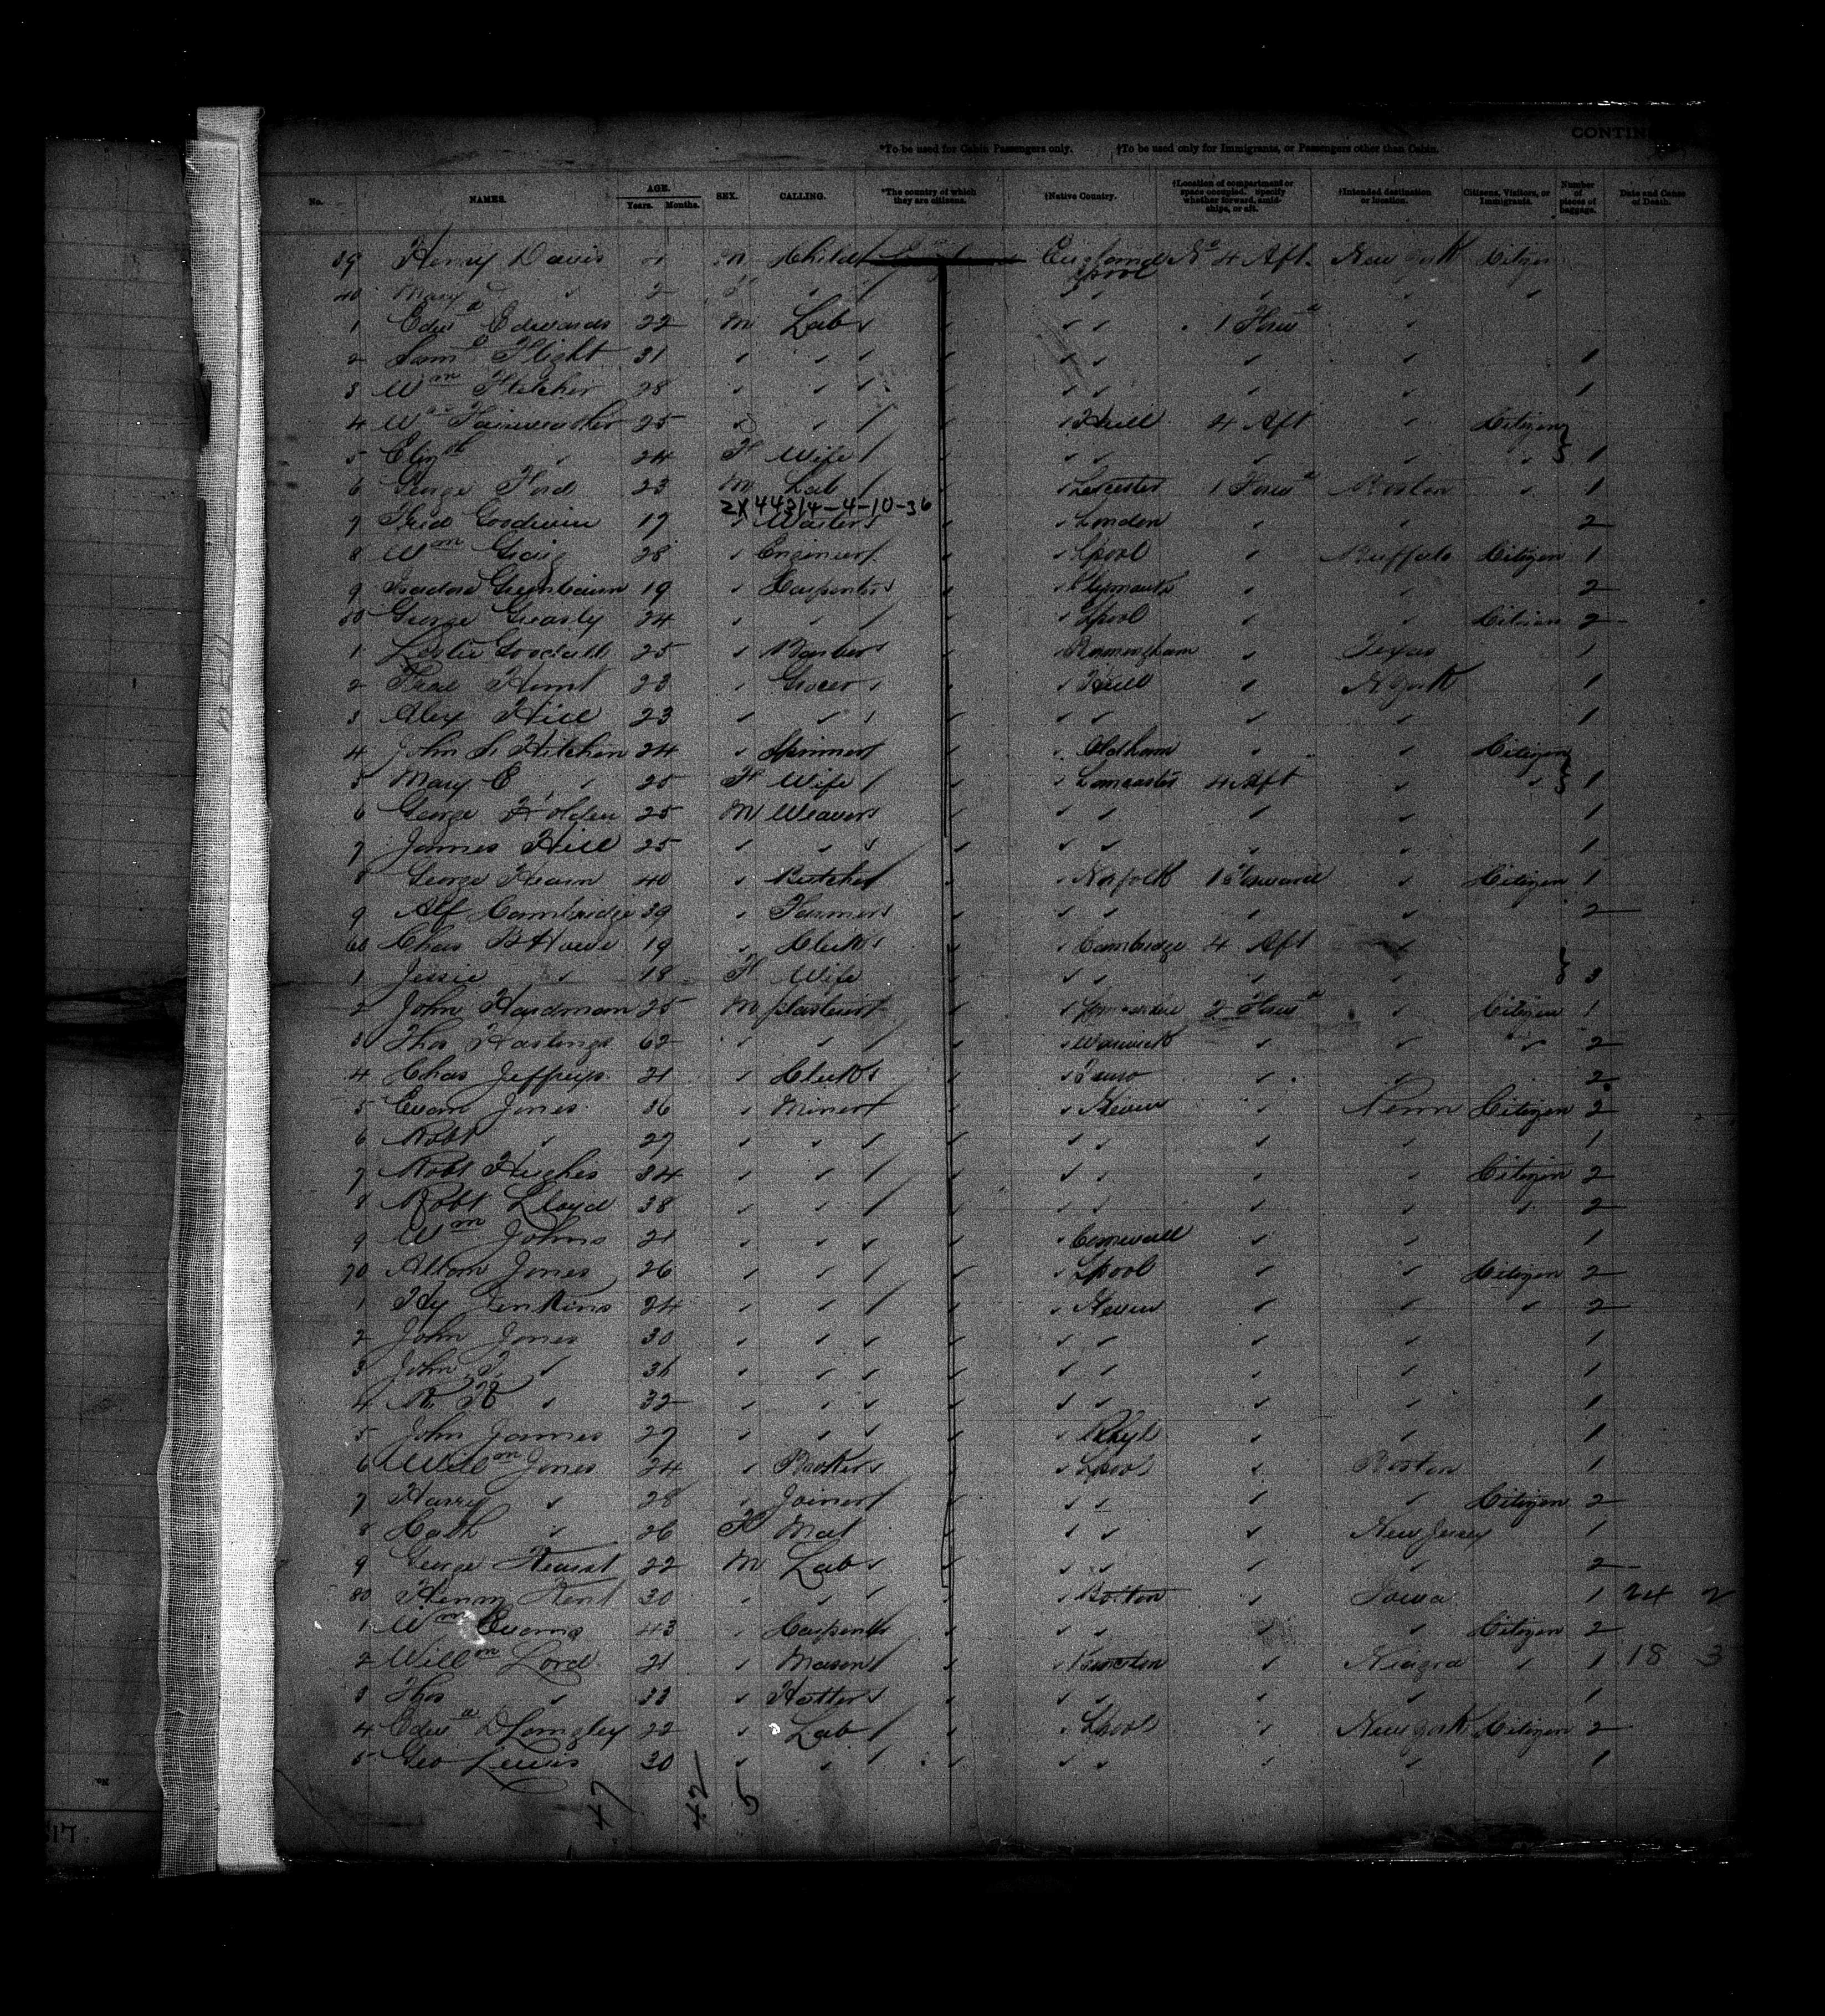 CONTIN
*To be used for Cabin Passengers only. †To be used only for Immigrants, or Passengers other than Cabin.
No. NAMES. AGE. Years. Months. SEX. CALLING. *The country of which they are citizens. †Native Country. †Location of compartment or space occupied. Specify whether forward, amidships, or aft. †Intended destination or location. Citizens, Visitors, or Immigrants. Number of pieces of baggage. Date and Cause of Death.
39 Henry Davis M Child England No 4 Aft. New York Citizen
Lpool
40 Mary ✓ 2 ✓ ✓ ✓ ✓ ✓ ✓
1 Edwd Edwards 22 M Lab ✓ ✓ ✓ 1 Forwd ✓
2 Saml Flight 31 ✓ ✓ ✓ ✓ ✓ ✓ ✓ 1
3 Wm Fletcher 28 ✓ ✓ ✓ ✓ ✓ ✓ 1
4 Wm 25 ✓ ✓ ✓ Hull 4 Aft ✓ Citizen
5 Elizth ✓ 24 F Wife ✓ ✓ ✓ ✓ ✓ ✓ 1
6 George Ford 23 M Lab ✓ ✓ Leicester 1 Forwd Boston ✓ 1
2X44314-4-10-36
7 Fred Goodwin 17 ✓ Waiter ✓ ✓ London ✓ ✓ 2
8 Wm Craig 28 ✓ Engineer ✓ Lpool ✓ Buffalo Citizen 1
9 Isadore Greenbaum 19 ✓ Carpenter ✓ Plymouth ✓ ✓ 2
50 George Greasly 24 ✓ ✓ ✓ ✓ Lpool ✓ ✓ Citizen 2
1 Leslie Goodall 25 ✓ Barber ✓ Birmingham ✓ Texas 1
2 Fred Hunt 23 ✓ Grocer ✓ ✓ Hull ✓ N York 1
3 Alex Hill 23 ✓ ✓ ✓ ✓ ✓ ✓ ✓ ✓ 1
4 John S. Hitchin 24 ✓ Spinner ✓ Oldham ✓ ✓ Citizen
5 Mary E ✓ 25 F Wife ✓ ✓ Lancaster 4 Aft ✓ ✓ 1
6 George Holden 25 M Weaver ✓ ✓ ✓ ✓ ✓ 1
7 James Hill 25 ✓ ✓ ✓ ✓ ✓ ✓ ✓ ✓ 1
8 George Hearn 40 ✓ Butcher ✓ Norfolk 1 Forward ✓ Citizen 1
9 Alf Cambridge 39 ✓ Farmer ✓ ✓ ✓ ✓ ✓ 2
60 Chas B Howe 19 ✓ Clerk ✓ ✓ Cambridge 4 Aft ✓
1 Jessie ✓ 18 F Wife ✓ ✓ ✓ ✓ ✓ 3
2 John Hardman 25 M plasterer ✓ 2 Forwd ✓ Citizen 1
3 Thos Hastings 62 ✓ ✓ ✓ ✓ Warwick ✓ ✓ ✓ 2
4 Chas Jeffreys 21 ✓ Clerk ✓ ✓ Truro ✓ ✓ 2
5 Evan Jones 36 ✓ Miner ✓ ✓ Nevin ✓ Penn Citizen 2
6 Robt ✓ 27 ✓ ✓ ✓ ✓ ✓ ✓ ✓ ✓ 1
7 Robt Hughes 34 ✓ ✓ ✓ ✓ ✓ ✓ ✓ ✓ Citizen 2
8 Robt Lloyd 38 ✓ ✓ ✓ ✓ ✓ ✓ ✓ ✓ ✓ 2
9 Wm Johns 21 ✓ ✓ ✓ ✓ ✓ Cornwall ✓ ✓ 1
70 Jones 26 ✓ ✓ ✓ ✓ ✓ Lpool ✓ ✓ Citizen 2
1 Hy Jenkins 24 ✓ ✓ ✓ ✓ ✓ Nevin ✓ ✓ ✓ 2
2 John Jones 30 ✓ ✓ ✓ ✓ ✓ ✓ ✓ ✓ 1
3 John T. ✓ 36 ✓ ✓ ✓ ✓ ✓ ✓ ✓ ✓ 1
4 R. H ✓ 32 ✓ ✓ ✓ ✓ ✓ ✓ ✓ ✓ 1
5 John James 27 ✓ ✓ ✓ ✓ ✓ Rhyl ✓ ✓ 1
6 Willm Jones 24 ✓ ✓ ✓ Lpool ✓ Boston 1
7 Harry ✓ 28 ✓ Joiner ✓ ✓ ✓ ✓ ✓ Citizen 2
8 Cath ✓ 26 F Mat ✓ ✓ ✓ ✓ New Jersey 1
9 George Hearst 22 M Lab ✓ ✓ ✓ ✓ ✓ ✓ 2
80 Henry Kent 30 ✓ ✓ ✓ ✓ ✓ Bolton ✓ Iowa 1 24 2
1 Wm Evans 43 ✓ Carpenter ✓ ✓ ✓ ✓ ✓ Citizen 2
2 Willm Lord 21 ✓ Mason ✓ ✓ ✓ Niagra ✓ 1 18 3
3 Thos ✓ 33 ✓ Hatter ✓ ✓ ✓ ✓ ✓ ✓ 1
4 Edwd D Langley 22 ✓ Lab ✓ ✓ Lpool ✓ New York Citizen 2
5 Geo Lewis 30 ✓ ✓ ✓ ✓ ✓ ✓ ✓ ✓ 1
47 42 5